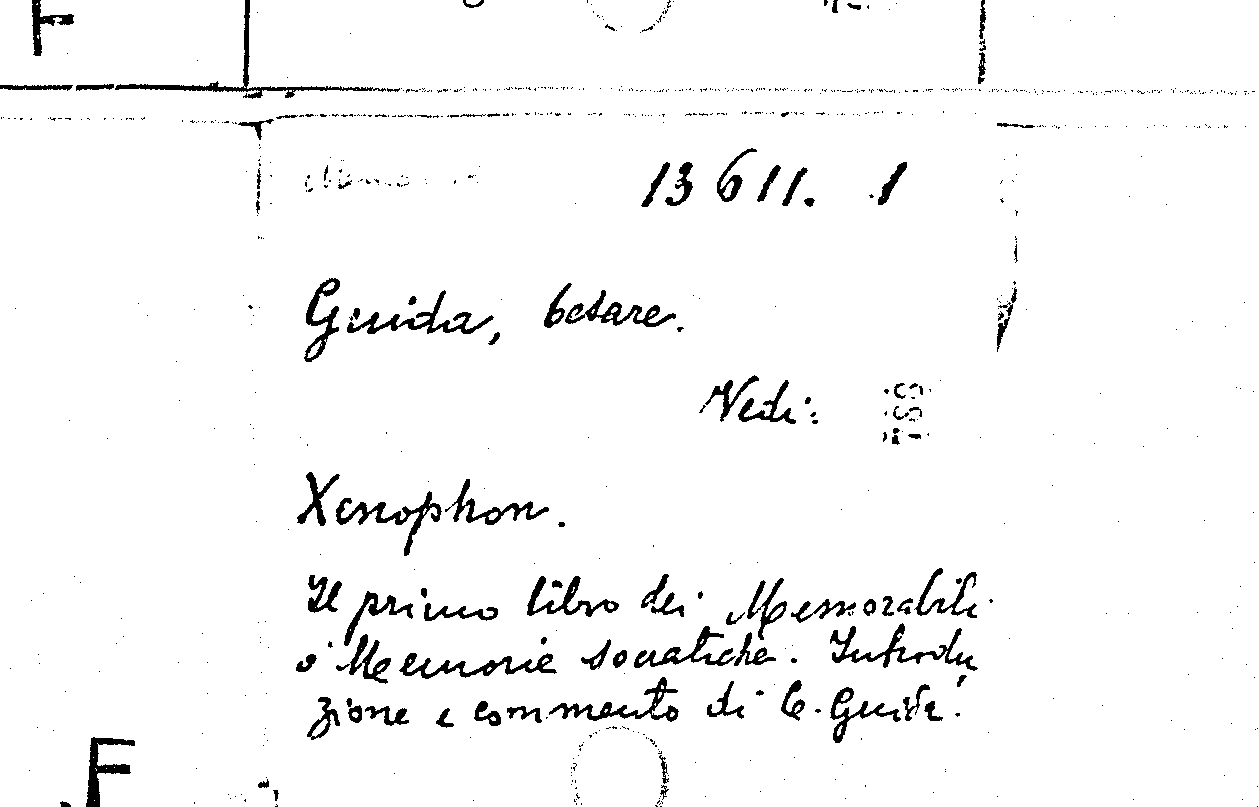 F
13611. 1
Guida, Cesare.
Vedi:
Xenophon.
Il primo libro dei Memorabili
o Memorie socratiche. Introdu
zione e commento di C. Guida.
F